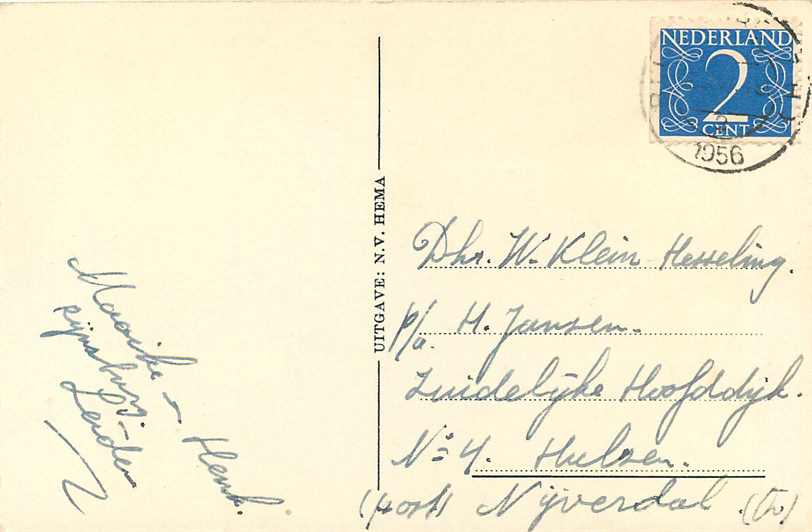 NEDERLAND
2
CENT
1956
UITGAVE: N.V. HEMA
Dhr. W. Klein Hesseling.
p/a. H. Jansen.
Zuidelijke Hoofddijk.
No 4. Hulsen.
(post) Nijverdal. (Ov)
Maaike – Henk.
Rijnsburg –
Leiden